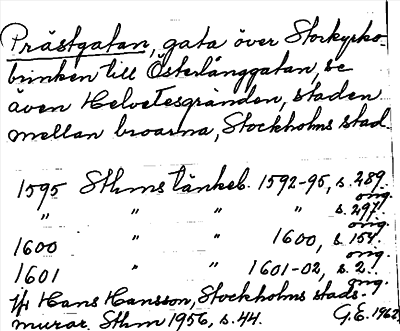 Prästgatan, gata över Storkyrko-
brinken till Österlånggatan, se
även Helvetesgränden, staden
mellan broarna, Stockholms stad
1595 Sthms tänkeb. 1592-95, s. 289.
orig.
" " " " s. 297.
orig.
1600 " " 1600, s. 154.
orig.
1601 " " 1601-02, s. 2.
orig.
Jfr Hans Hansson, Stockholms stads-
murar. Sthm 1956, s. 44. G.E. 1962